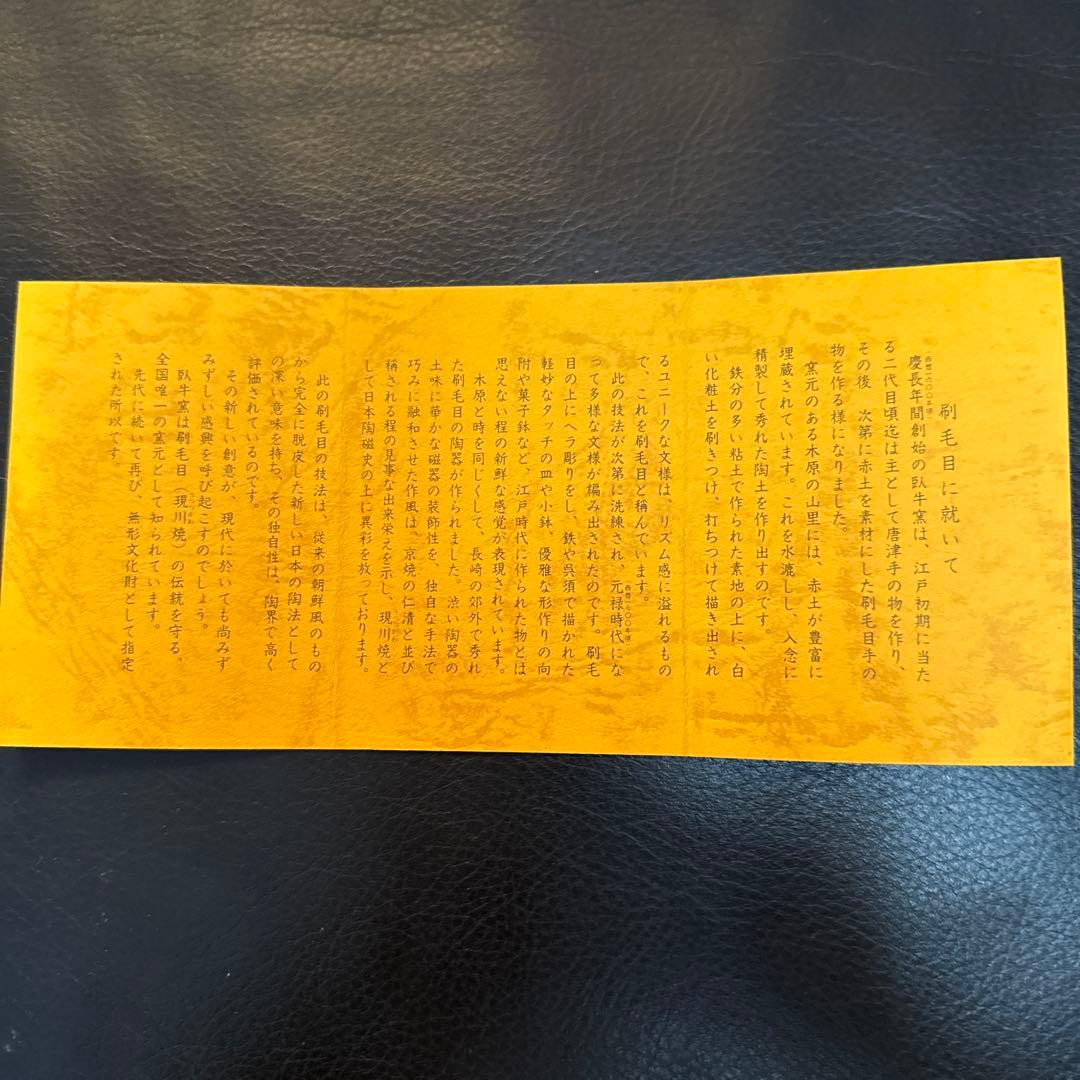 刷毛目に就いて
慶長年間創始の臥牛窯は、江戸初期に当た
る二代目頃迄は主として唐津手の物を作り、
その後、次第に赤土を素材にした刷毛目手の
物を作る様になりました。
窯元のある木原の山里には、赤土が豊富に
埋蔵されています。これを水漉しし、入念に
精製して秀れた陶土を作り出すのです。
鉄分の多い粘土で作られた素地の上に、白
い化粧土を刷きつけ、打ちつけて描き出され
るユニークな文様は、リズム感に溢れるもの
で、これを刷毛目と稱んでいます。
此の技法が次第に洗練され、元禄時代にな
って多様な文様が編み出されたのです。刷毛
目の上にヘラ彫りをし、鉄や呉須で描かれた
軽妙なタッチの皿や小鉢、優雅な形作りの向
附や菓子鉢など、江戸時代に作られた物とは
思えない程の新鮮な感覚が表現されています。
木原と時を同じくして、長崎の郊外で秀れ
た刷毛目の陶器が作られました。渋い陶器の
土味に華かな磁器の装飾性を、独自な手法で
巧みに融和させた作風は、京焼の仁清と並び
稱される程の見事な出来栄えを示し、現川焼と
して日本陶磁史の上に異彩を放っております。
此の刷毛目の技法は、従来の朝鮮風のもの
から完全に脱皮した新しい日本の陶法として
の深い意味を持ち、その独自性は、陶界で高く
評価されているのです。
その新しい創意が、現代に於いても尚みず
みずしい感興を呼び起こすのでしょう。
臥牛窯は刷毛目（現川焼）の伝統を守る、
全国唯一の窯元として知られています。
先代に続いて再び、無形文化財として指定
された所以です。